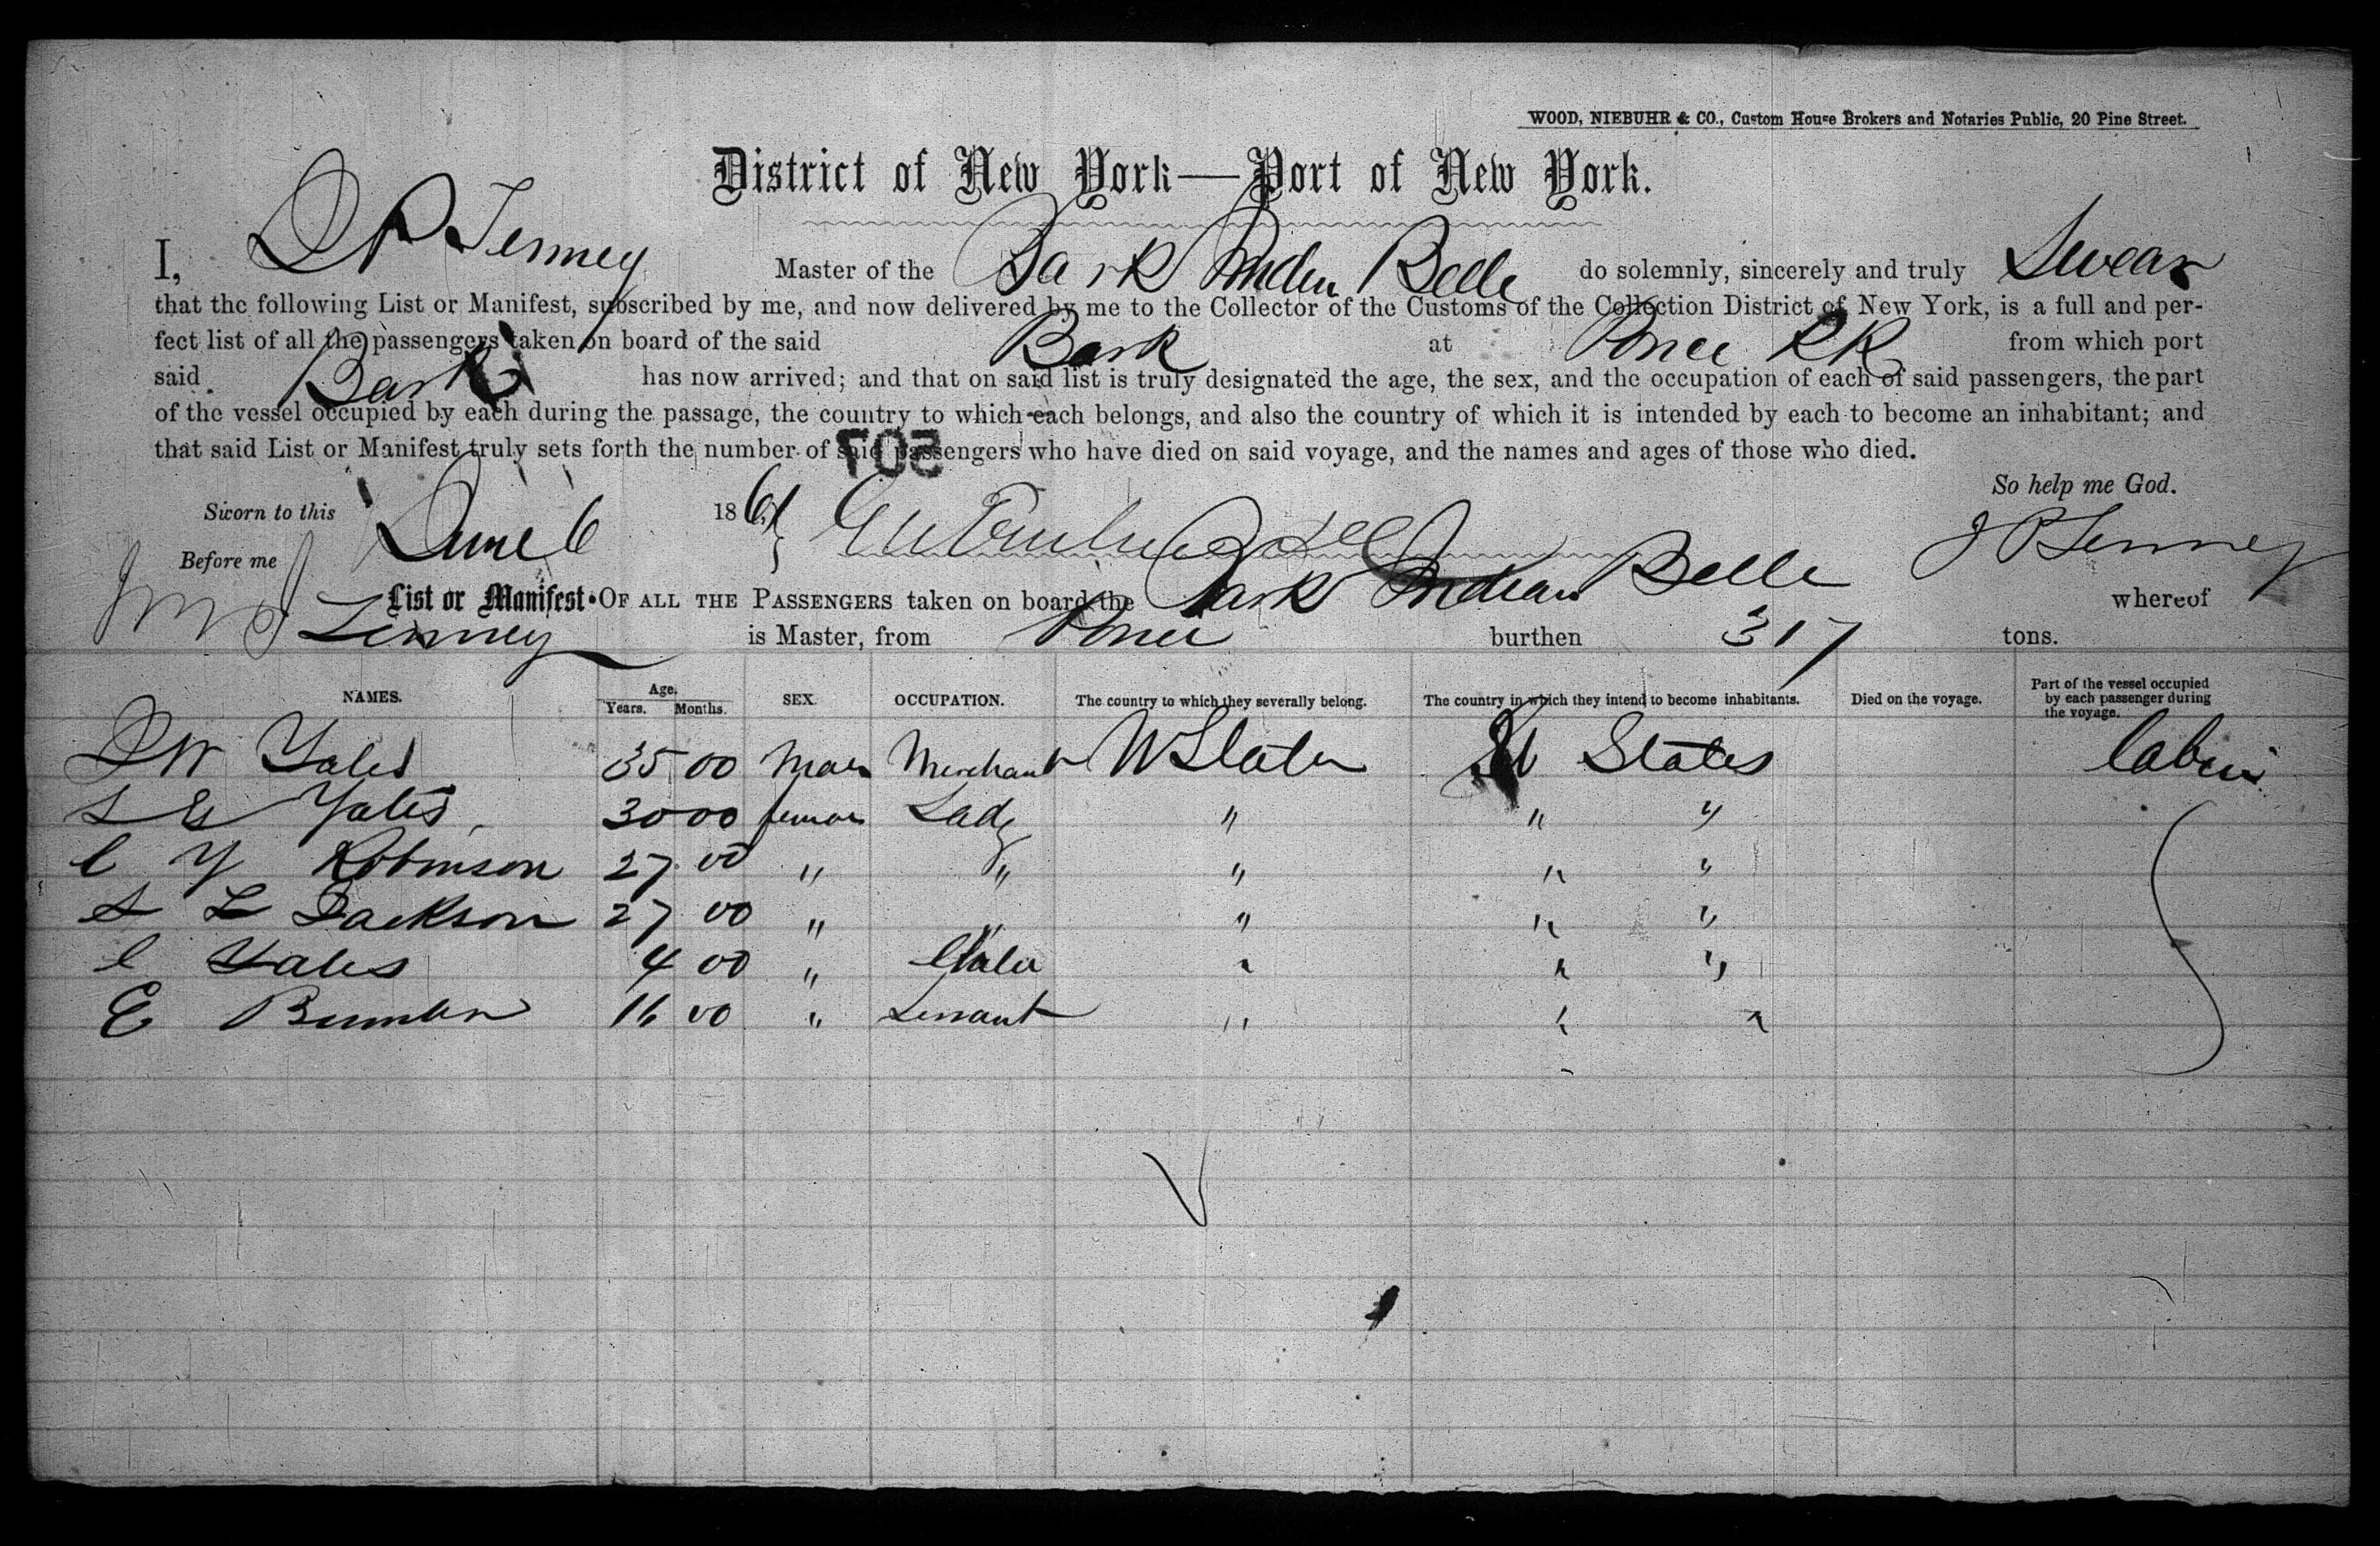 WOOD, NIEBUHR & CO., Custom House Brokers and Notaries Public, 20 Pine Street.
District of New York—Port of New York.
I, J P Tenney Master of the Bark Indian Belle do solemnly, sincerely and truly Swear
that the following List or Manifest, subscribed by me, and now delivered by me to the Collector of the Customs of the Collection District of New York, is a full and per-
fect list of all the passengers taken on board of the said Bark at Ponce P R from which port
said Bark has now arrived; and that on said list is truly designated the age, the sex, and the occupation of each of said passengers, the part
of the vessel occupied by each during the passage, the country to which each belongs, and also the country of which it is intended by each to become an inhabitant; and
that said List or Manifest truly sets forth the number of said passengers who have died on said voyage, and the names and ages of those who died.
507
So help me God.
Sworn to this June 6 1861
Before me
J P Tenney
List or Manifest OF ALL THE PASSENGERS taken on board the Bark Indian Belle whereof
Tenney is Master, from Ponce burthen 317 tons.
NAMES. Age. Years. Months. SEX. OCCUPATION. The country to which they severally belong. The country in which they intend to become inhabitants. Died on the voyage. Part of the vessel occupied by each passenger during the voyage.
J W Yates 35 00 Male Merchant U States U States Cabin
S E Yates 30 00 female Lady " " "
C Y Robinson 27 00 " " " " "
S L Jackson 27 00 " " " " "
C Yates 4 00 " Child " " "
E 16 00 " Servant " " "